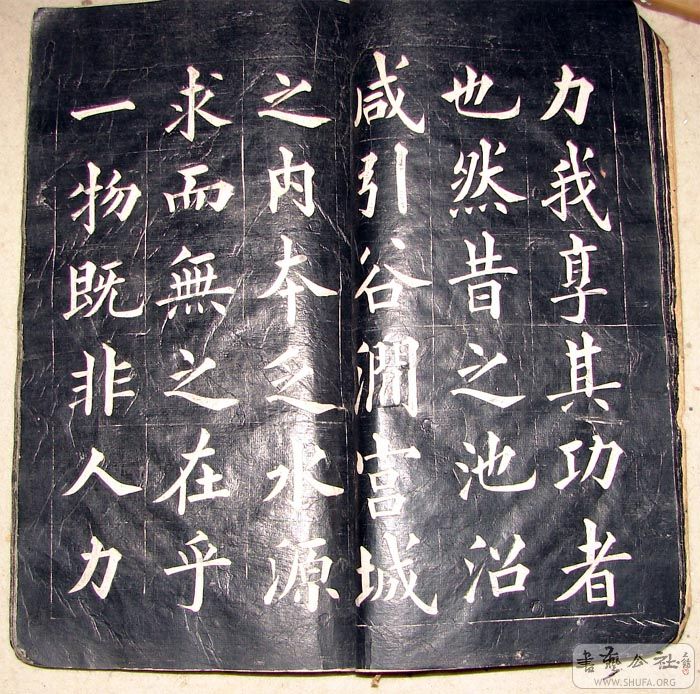 力我享其功者
也然昔之池沼
咸引谷澗宮城
之内本乏水源
求而無之在乎
一物既非人力
書艺公社
WWW.SHUFA.ORG